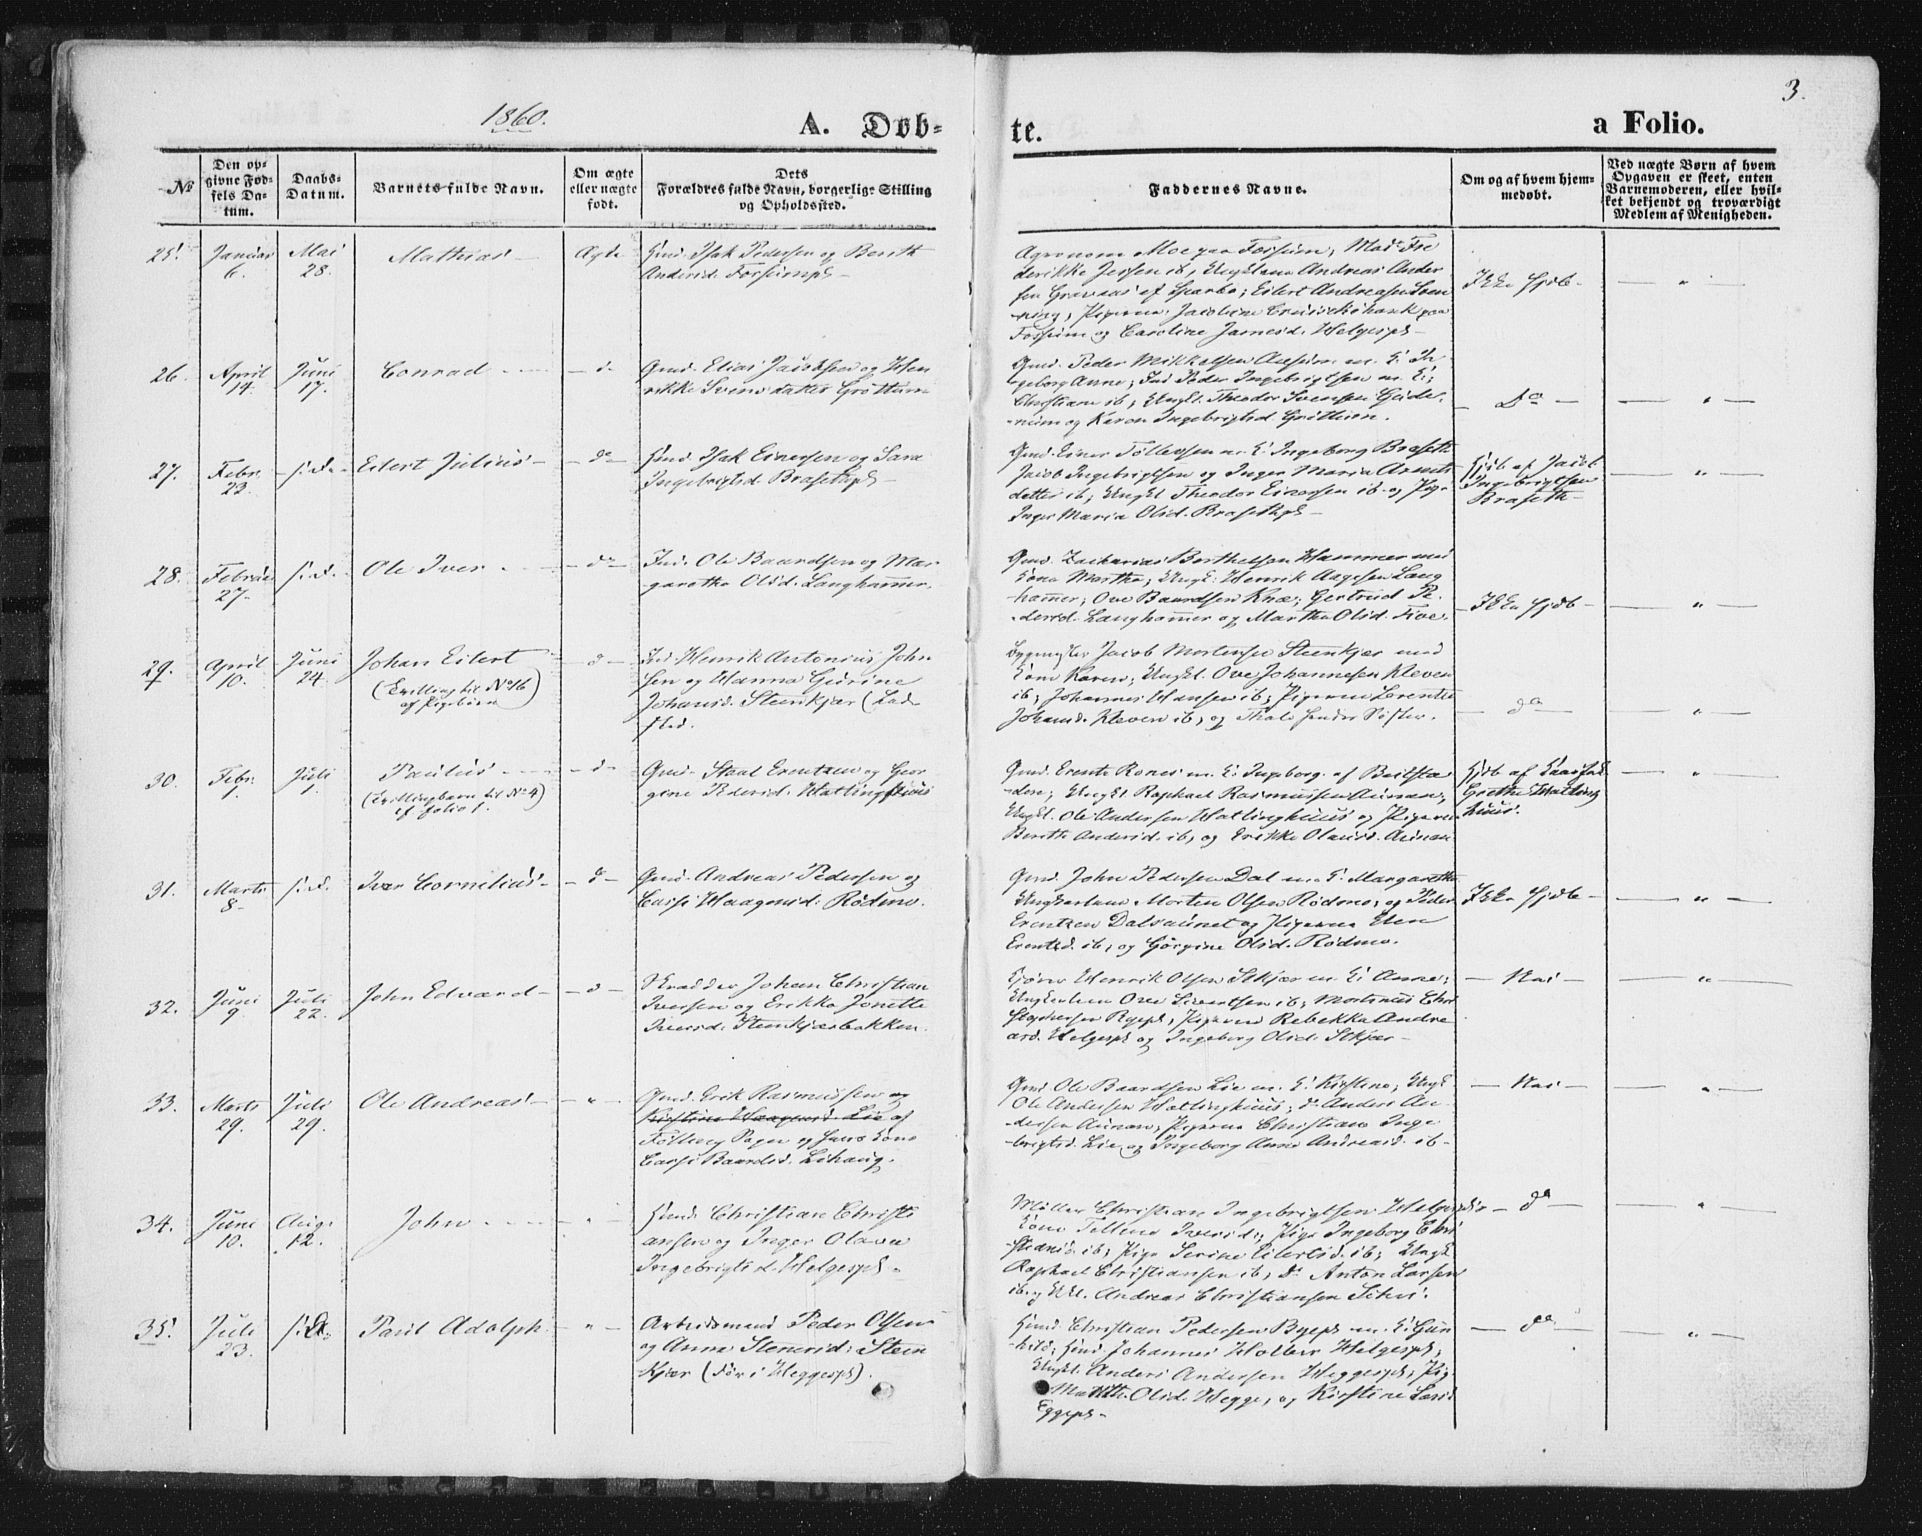 3.
1860.
A. Døb-
te.
a Folio.
No
Den op-
givne Fød-
sels Da-
tum.
Daabs-
Datum.
Barnets fulde Navn.
Om ægte
eller uægte
født.
Dets
Forældres fulde Navn, borgerlige Stilling
og Opholdssted.
Faddernes Navne.
Om og af hvem hjem-
medøbt.
Ved uægte Børn af hvem
Opgaven er skeet, enten
Barnemoderen, eller hvil-
ket bekjendt og troværdigt
Medlem af Menigheden.
25.
Januar
6.
Mai
28.
Mathias
Ægte
Huusm. Isak Pedersen og Bereth
Andersd. Forsumpl.
Agronom Moe paa Forsum, Mad. Fre
derikke Jessen ib, Ungkarlene Andreas Ander
sen Gravaas af Sparbo; Eilert Andreassen Svens
ning, Pigerne Jacobine paa
Forsum og Caroline Jamesd. Helgespl.
Ikke hjdb.
26.
April
14.
Juni
17.
Conrad
d
Gmd. Elias Jacobsen og Hen
rikke Svensdatter Grøttum
Gmd. Peder Mikkelsen m. K. In
geborg Anne; Ind. Peder Ingebrigtsen m. K.
Christiane ib, Ungk. Theodor Svensen
og Karen Ingebrigtsd. Grøttum.
Do
27.
Febr.
23.
s. D.
Eilert Julius
do
Huusm. Isak Einersen og Sara
Ingebrigtsd. Brasethpl.
Gmd. Einer Tollevsen m. K. Ingeborg Braseth
Jacob Ingebrigtsen og Inger Maria Arnts
datter ib, Ungk. Theodor Einersen ib. og Pige
Inger Maria Olsd. Brasethpl.
Hjdb. af Jacob
Ingebrigtsen
Braseth
28.
Februar
27.
s. D.
Ole Iver
do
Ind. Ole Baardsen og Mar
garetha Olsd. Langhammer.
Gmd. Zacharias Berthelsen Hammer med
Kone Martha, Ungk. Henrik Aagesen Lang
hammer; Ove Baardsen Knæ; Gertrud Pe
dersd. Langhammer og Martha Olsd. Five.
Ikke hjdb
29.
April
10.
Juni
24.
Johan Eilert
(Tvilling til No 16
af Pigebørn)
d
Ind. Henrik Antonius John
sen og Hanna Gurine
Johansd. Steenkjær (Lad
sted.
Bygmester Jacob Mortensen Steenkjær med
Kone Karen, Ungk. Ove Johannesen Kleven
ib; Johannes Hansen ib; Pigerne Lorentse
Johansd. Kleven ib, og Thale hendes Søster.
do
30.
Febr.
1.
Juli
1.
Paulus
(Tvillingbarn til No 4)
af folio 1.
d
Gmd. Staal Erentzen og Geor
gine Pedersd. Hatlinghuus
Gmd. Erents Rones m. K. Ingeborg af Beitsta
den; Ungk. Raphael Rasmussen Aunan,
Ungk. Ole Andersen Hatlinghuus og Pigerne
Bereth Andersd. ib, og Erikke Olausd. Aunan
Hjdb. af
Grethe Hatling
huus.
31.
Marts
8.
s. D.
Iver Cornelius
d
Gmd. Andreas Pedersen og
Beret Haagensd. Rødmo.
Gmd. John Pedersen Dal m. K. Margaretha
Ungkarlene Morten Olsen Rødmo, og Peder
Erentzen Dalsaunet og Pigerne Elen
Erentsd. ib, og Gørgine Olsd. Rødmo.
Ikke hjdb
32.
Juni
9.
Juli
22.
John Edvard
d
Skrædder Johan Christian
Iversen og Erikka Jonette
Iversd. Steenkjærbakken.
Henrik Olsen Stkjær m. K. Anne;
Ungkarlene Ove Sivertsen ib; Mortinus Chri
stophersen Byepl., Pigerne Rebekka Andre
asd. Helgespl og Ingeborg Olsd. Stkjær
Nei
33.
Marts
29.
Juli
29.
Ole Andreas
Gmd. Erik Rasmussen og
Kirstine Haagensd. Lie af
Følling Sogn og hans Kone
Beret Baardsd. Lihaug.
Gmd. Ole Baardsen Lie m. K. Kirstine; Ungk.
Ole Andersen Hatlinghuus; do Anders An
dersen Aunan; Pigerne Christiane Inge
brigtsd. Lie og Ingeborg Anna Andreasd. ib
Nei
34.
Juni
10.
Aug.
12.
John
Huusm. Christian Christi
ansen og Inger Olava
Ingebrigtsd. Helgespl.
Møller Christian Ingebrigtsen Helgespl.
Kone Iversd., Pige Ingeborg Chri
stiansd. ib, Pige Serine Eilertsd. ib; Ungk.
Raphael Christiansen ib, do Anton Larsen
ib. og Ungk. Andreas Christiansen
do
35.
Juli
23.
s. D.
Paul Adolph
Arbeidsmand Peder Olsen
og Anna Stenersd. Steen
kjær (før i Heggespl).
Huusm. Christian Pedersen Byepl. m. K. Gun
hild; Huusm. Johannes Helgespl,
Ungk. Anders Andersen Heggespl; Pig.
Marith Olsd. Hegge, og Kirstine Larsd.
Eggepl.
do